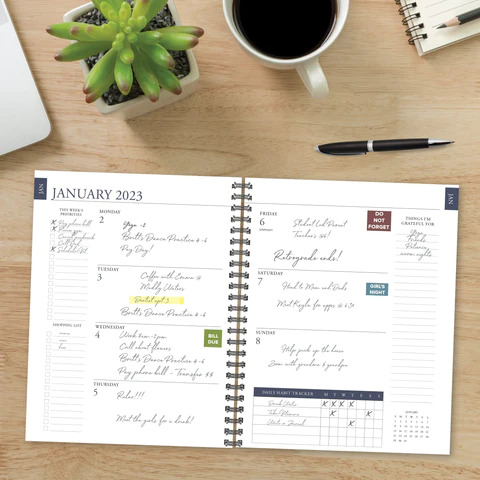 JAN
JANUARY 2023
THIS WEEK'S
PRIORITIES
Pay phone bill
SHOPPING LIST
MONDAY
2
Yoga -
Britt's Dance Practice 4-6
Pay Day!
TUESDAY
3
Coffee with Emma @
Muddy Waters
Dentist apt 3
Britt's Dance Practice 4-6
WEDNESDAY
4
Work 8am-2pm
Call about flowers
Britt's Dance Practice 4-6
Pay phone bill - Transfer $$
BILL
DUE
THURSDAY
5
Relax!!!
Meet the girls for a drink!
JAN
FRIDAY
6
Student Led Parent
Teachers @6!
Retrograde ends!
DO
NOT
FORGET
SATURDAY
7
Head to Mom and Dads
Meet Kayla for apps @ 6:30
GIRL'S
NIGHT
SUNDAY
8
Help pick up the house
Zoom with grandma & grandpa
DAILY HABIT TRACKER
M T W T F S S
Take Vitamins
Write in Journal
THINGS I'M
GRATEFUL FOR
Yoga
Friends
warm nights
JANUARY